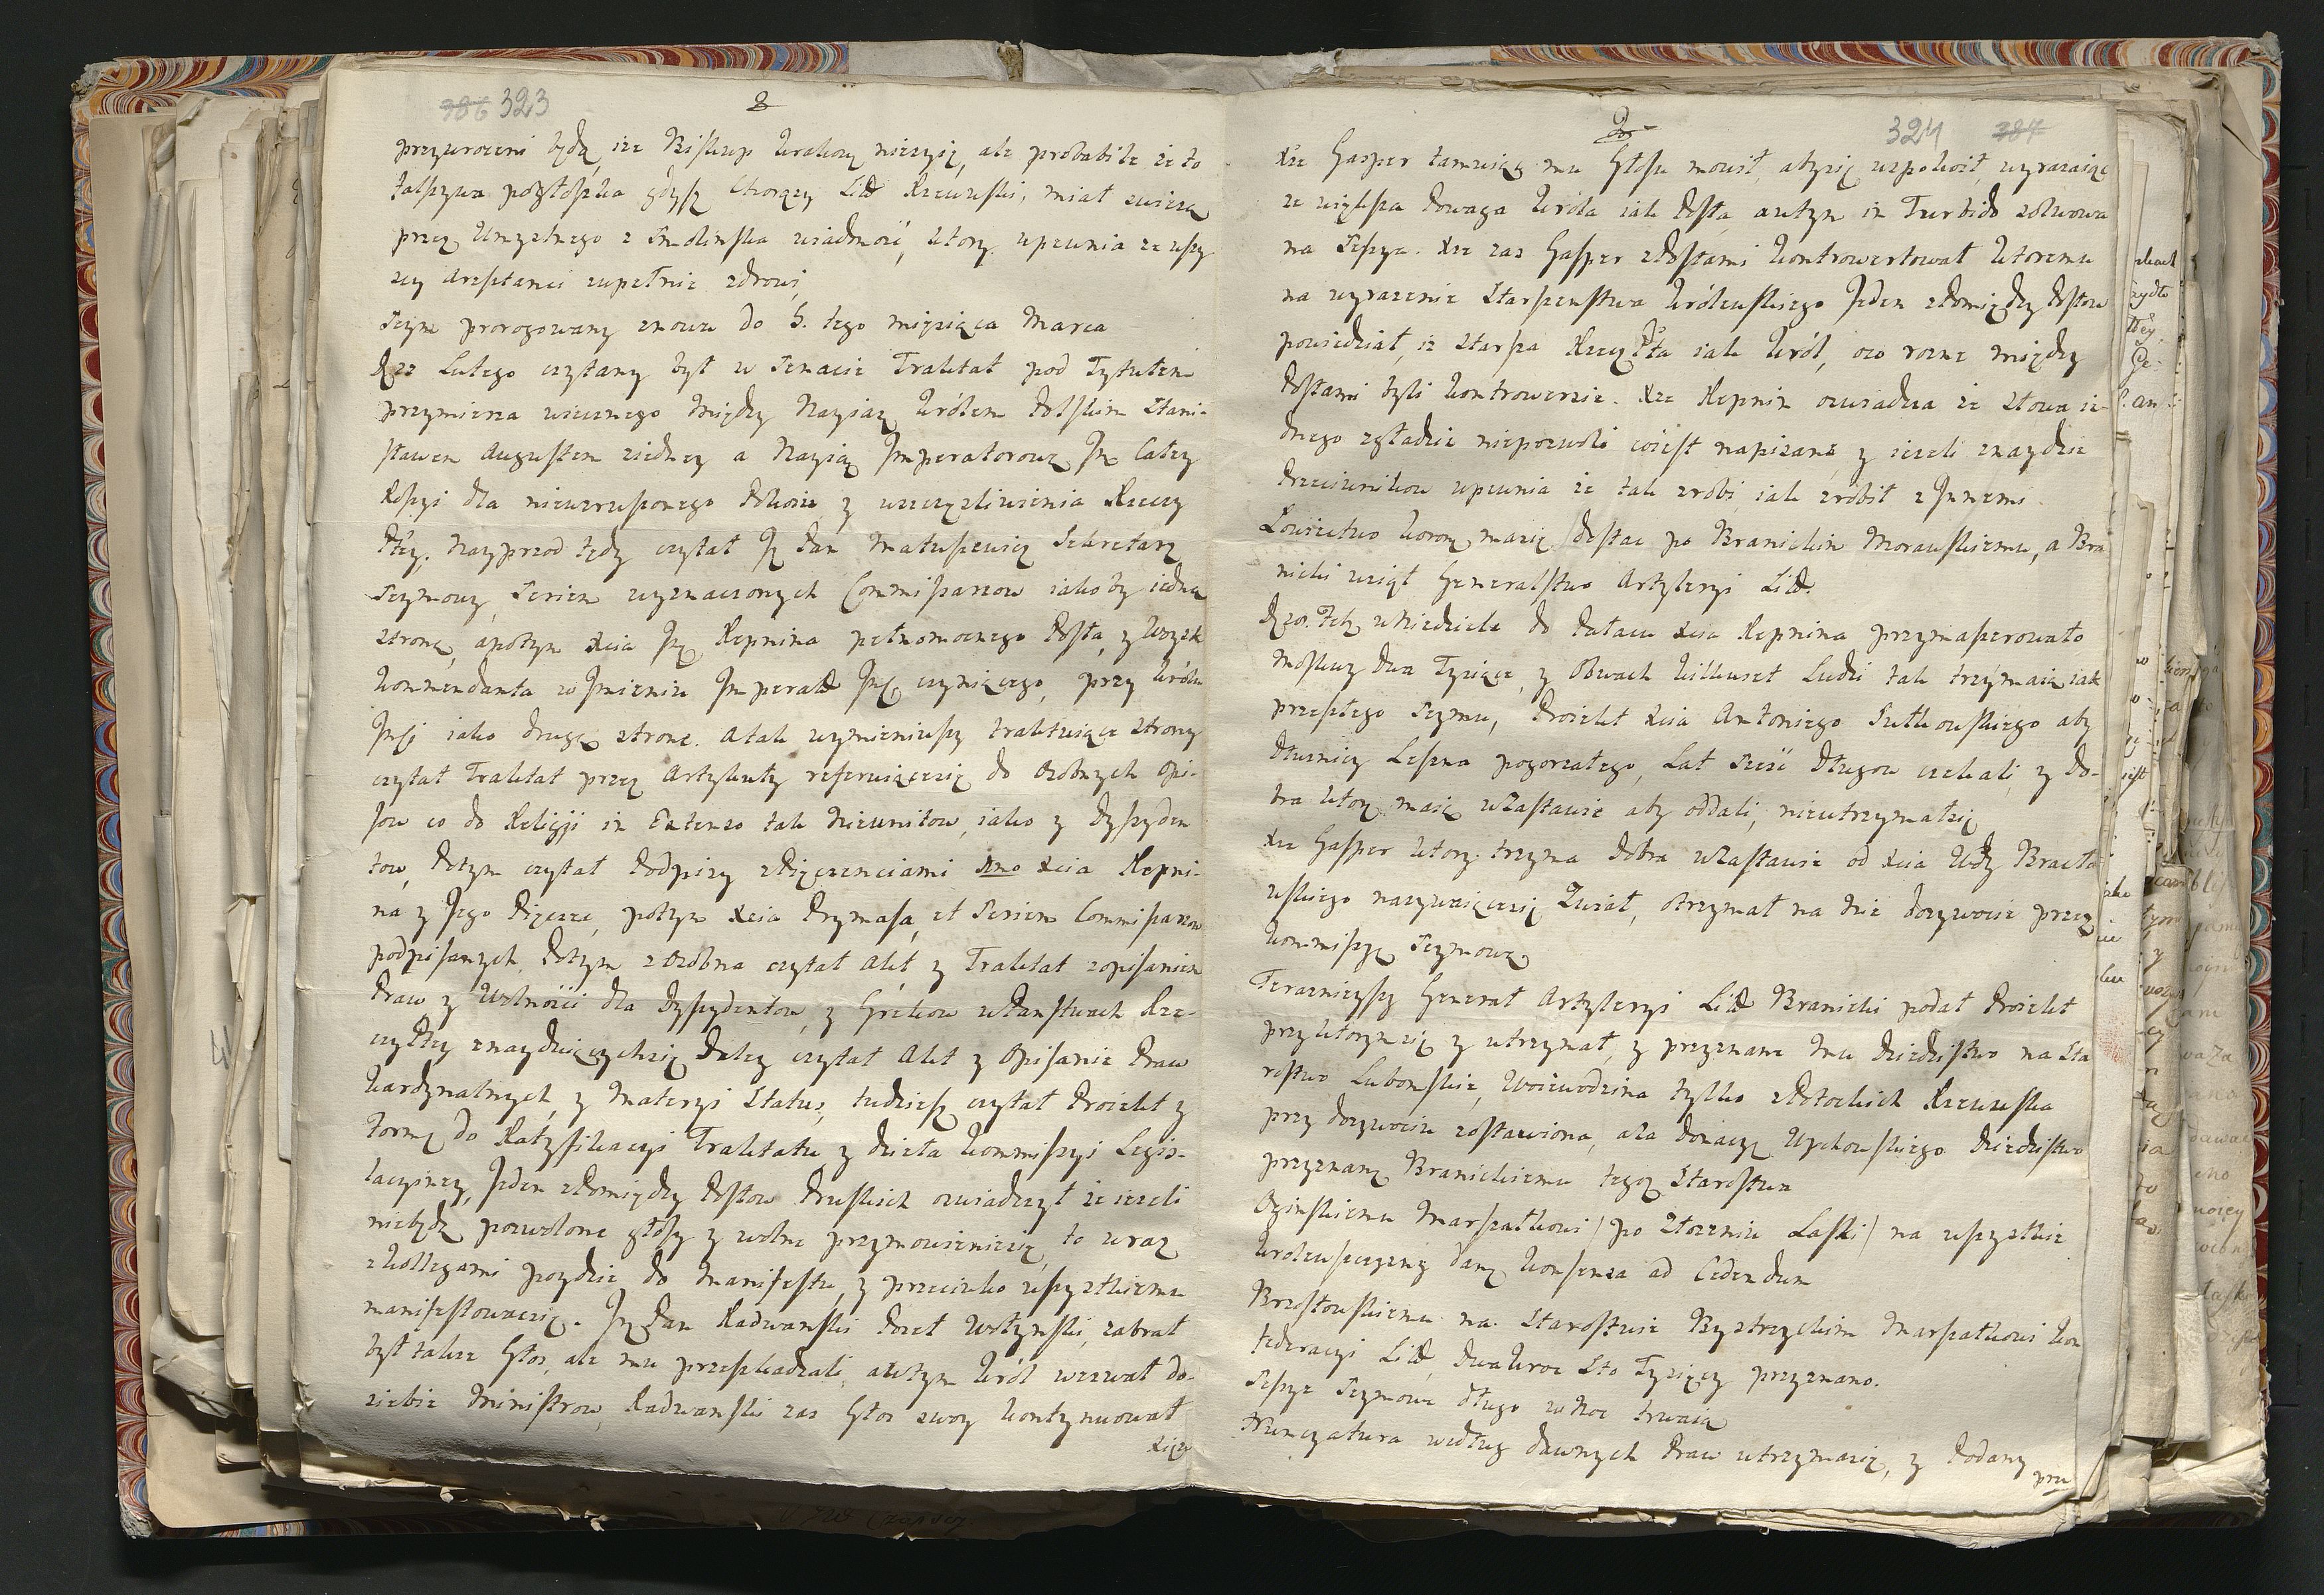 786 323
8
przywroceni będą, ize Biskup Krakow nieżyie, ale probabile że to
fałszywa pogłoska gdysz Chorąży Litt Rzewuski, miał swieżą
przez Umyslnego z Smolinska wiadmość, ktory upewnia ze wszy
scy Aresztanci zupełnie zdrowi,
Seym prorogowany znowu do 5. tego miesiąca Marca
D 22 Lutego czytany był w Senacie Traktat pod Tytułem
przymierza wiecznego między Nayiaś Królem Polskim Stani-
sławem Augustem ziedney a Nayiaś Imperatorową Im Całey
Rossyi dla niewzruszonego Pokoiu y uszczęsliwienia Rzeczy
Pltey. Nayprzod tedy czytał J Pan Matuszewicz Sekretarz
Seymowy, Seriem wyznaczonych Commissarzow iakoby iedną
stronę, apotym Xcia Jm Repnina pełnomocnego Posła, y Woysk
kommendanta w Jmieniu Imperat Jmci czyniącego, przy Królu
Jmci iako drugą stronę. A tak wymieniwszy traktuiące strony
czytał Traktat przez Artykuły referuiącesię do Osobnych Opi-
sow co do Religji in Extenso tak Nieunitow, iako y Dyssyden
tow, Potym czytał Podpisy zPięczęnciami 1mo Xcia Repni-
na y Jego Pięczęć, potym Xcia Prymasa, et Seriem Commissarzow
podpisanych, Potym zosobna czytał Akt y Traktat zopisaniem
Praw y Wolności dla Dyssydentow, y Grekow wPanstwach Rze-
czyPltey znayduiącychsię Daley czytał Akt y Opisanie Praw
kardynalnych, y Materyi Status, tudziesz czytał Proiekt y
formę do Ratyfikacyi Traktatu y dzieła Kommissyi Legis-
lacyiney, Jeden zPomiędzy Posłow Pruskich oswiadczył że ieżeli
niebędą pozwolone głosy y wolne przymowieniesię, to wraz
zKollegami poydzie do Manifestu, y przeciwko wszystkiemu
manifestowacsię. Jm Pan Radwanski Poseł Wołynski, zabrał
był także Głos, ale mu przeszkadzali, awtym Król wezwał do-
siebie Ministrow, Radwanski zas Głos swoy kontynuował
Xiąże
9
324 387
Xże Gasper tamuiąc mu Głosu mowił, abysię uspokoił, wyrażaiąc
ze większa Powaga Króla iak Posła, awtym in Turbido solwowa
na Sessya. Xże zas Gasper zPosłami kontrowertował ktoremu
na wyrażenie Starszenstwa Królewskiego Jeden zPomiędzy Posłow
powiedział, iż starsza RzeczPlta iak Król, oco rożne między
Posłami byli kontrowersie. Xże Repnin oswiadcza że słowa ie-
dnego zgładzic niepozwoli coiest napisane, y ieżeli znaydzie
Przeciwnikow upewnia że tak zrobi, iak zrobił z Jnnemi.
Łowiectwo Koron masię / dostac po Branickim Morawskiemu, a Bra
nicki wziął Generalstwo Artyleryi Litt.
D 28. Feb. wNiedziele do Pałacu Xcia Repnina przymaszerowało
Moskwy dwa Tysiące, y Obuach kilkuset Ludzi tak trzymaią iak
przeszłego Seymu, Proiekt Xcia Antoniego Sułkowskiego aby
Dłuznicy Leszna pogorzałego, Lat szesć Długow czekali, y do-
bra ktore maią wZastawie aby oddali, nieutrzymałsię
Xże Gasper ktory trzyma dobra wZastawie od Xcia Wdy Bracła
wskiego nazywaiącesię Zwiał, Otrzymał na Nie dożywocie przez
Kommissyą Seymową
Teraznieyszy Generał Artyleryi Litt Branicki podał Proiekt
przyktorymsię y utrzymał, y przyznane Mu Dziedzistwo na Sta
rostwo Lubomskie, Woiewodzina tylko zPotockich Rzewuska
przy dożywociu zostawiona, aza donacyę Wychowskiego Dziedzistwo
przyznane Branickiemu tegoż Starostwa
Oginskiemu Marszałkowi / po złożeniu Laski / na wszystkie
Krolewszczyzny dany Konsens ad Cedendum
Brzostowskiemu na Starostwie Bystrzyckim Marszałkowi kon
federacyi Litt, dwakroc Sto Tysięcy przyznano.
Sessye Seymowe długo wNoc trwaią
Nuncyatura według dawnych Praw utrzymasię, y Podany
prze